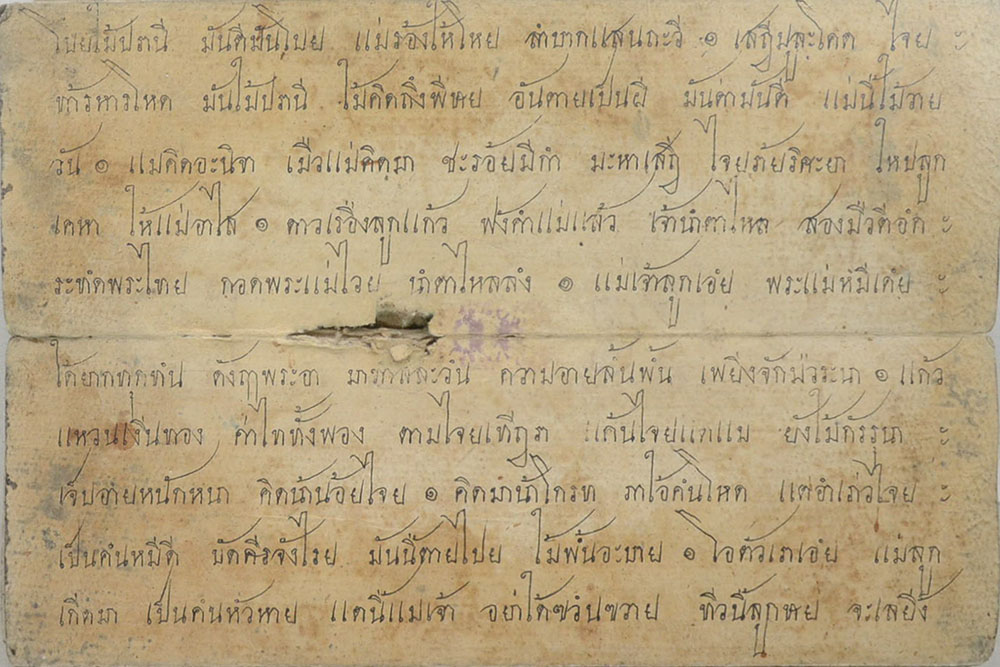 ไปยไม้ปรานี มันดีมันไปย แม่ร้องไห้ไหย ลำบากแสนทะวี ๑ เสถีมูละโคด ไจย ะ
ห้ารหารโหด มันไม้ปรานี ไม้คิดถึงพีหฺย อันตายเป็นผี มันด่ามันดี แม่นี้ไม้วาย
วัน ๑ แม่คิดอะนิจา เมีอแม่คิดมา ชะรอ้ยมีกำ มะหาเสถี ไจยร้ายริศะยา ไหปลูก
เคหา ไห้แม่อาไส ๑ ดาวเรื่องลูกแก้ว ฟงคำแม่แล้ว เจ้านำตาไหล สองมีวตีอํก ะ
ระทํดพระไทย กอดพระแม่ไวย นำตาไหลลํง ๑ แม่เจ้าลูกเอย๋ พระแม่หมีเคย๋ ะ
ได้ยากทุกทํน ดังฤๅพระอา ความอายล้นพ้น เพยีงจักม่วระนา ๑ แก้ว
แหวนเงินทอง ค่าไททั้งพอง ตามไจยเทีฤๅ แค้นไจยแตแม ยังไม้กัรรุนา ะ
เจ็บอายหนักหนา คิดน่าน้อยไจย ๑ คิดมาน่าโกรท คํนโหด แต่อำเภ่วไจย ะ
เป็นคํนหมีดี บัดศีรจังไรย มันนี้ตายไปย ไม้พ้นอะบาย ๑ โอตัวเราเอย๋ แม่ลูก
เกีดมา เป็นคํนหัวหาย แตนี้แม่เจ้า อยาได้ขวํนขวาย ทีวนี้ลูกหฺย จะเลยีง